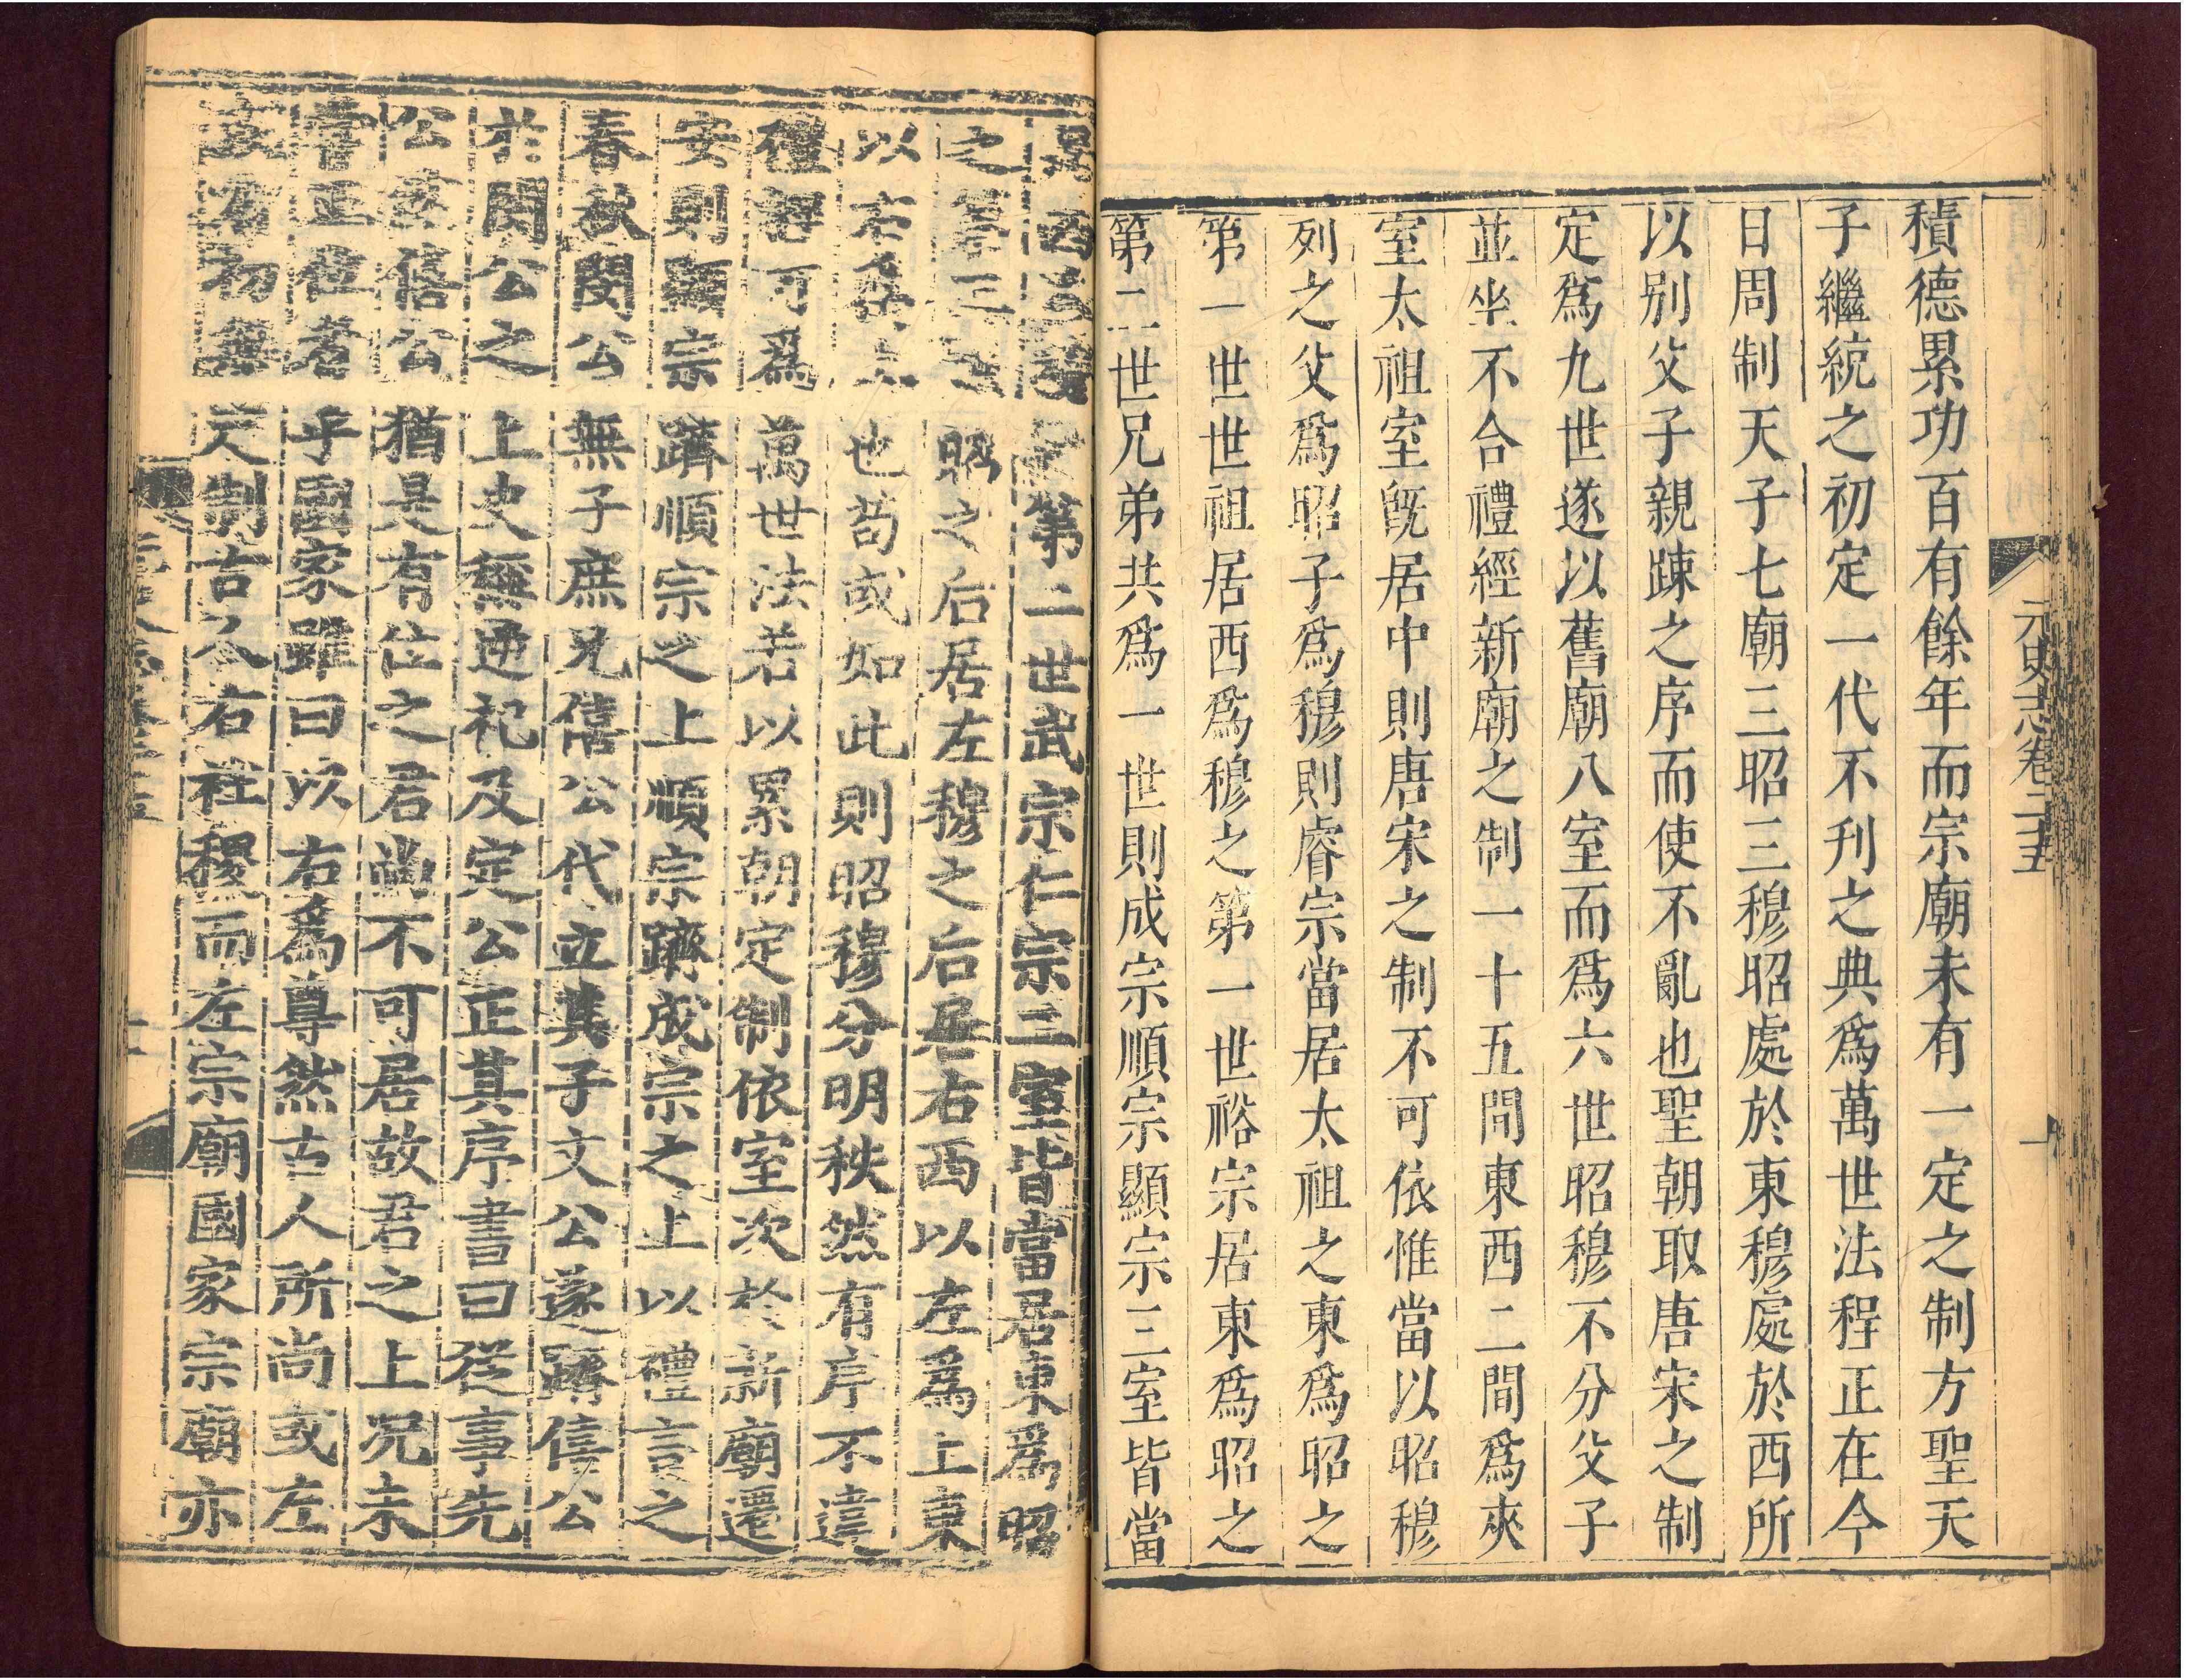 元史志卷二十五
積德累功百有餘年而宗廟未有一定之制方聖天
子繼統之初定一代不刋之典為萬世法程正在今
日周制天子七廟三昭三穆昭處於東穆處於西所
以别父子親踈之序而使不亂也聖朝取唐宋之制
定爲九世遂以舊廟八室而爲六世昭穆不分父子
並坐不合禮經新廟之制一十五間東西二間爲夾
室太祖室旣居中則唐宋之制不可依惟當以昭穆
列之父爲昭子爲穆則睿宗當居太祖之東爲昭之
第一世世祖居西爲穆之第一世裕宗居東爲昭之
第二世兄弟共爲一世則成宗順宗顯宗三室皆當
居西 第二世武宗仁宗二室皆當居東爲昭
之第三 昭之后居左穆之后居右西以左爲上東
以右爲上也苟或如此則昭穆分明秩然有序不違
禮 可爲萬世法若以累朝定制依室次於新廟遷
安則顯宗躋順宗之上順宗躋成宗之上以禮言之
春秋閔公無子庶兄僖公代立其子文公遂躋僖公
於閔公之上史 逆祀及定公正其序書曰從事先
公 僖公猶是有位之君尚不可居故君之上况未
嘗正位者乎國家雖曰以右爲尊然古人所尚或左
或右初無定制古人右社稷而左宗廟國家宗廟亦